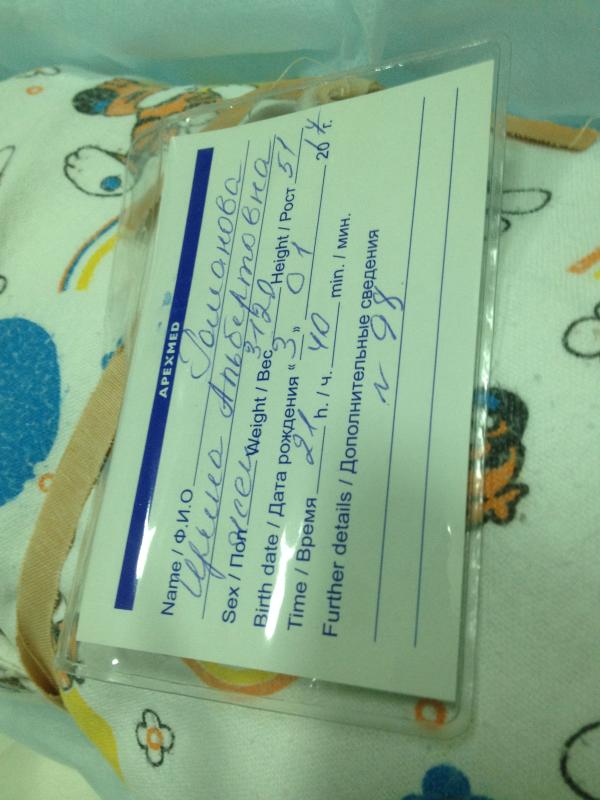 APEXMED
Name / Ф.И.О Романова
Ирина Альбертовна
Sex / Пол жен Weight / Вес 3120 Height / Рост 51
Birth date / Дата рождения « 3 » 01 2014 г.
Time / Время 21 h. / ч. 40 min. / мин.
Further details / Дополнительные сведения
N 98